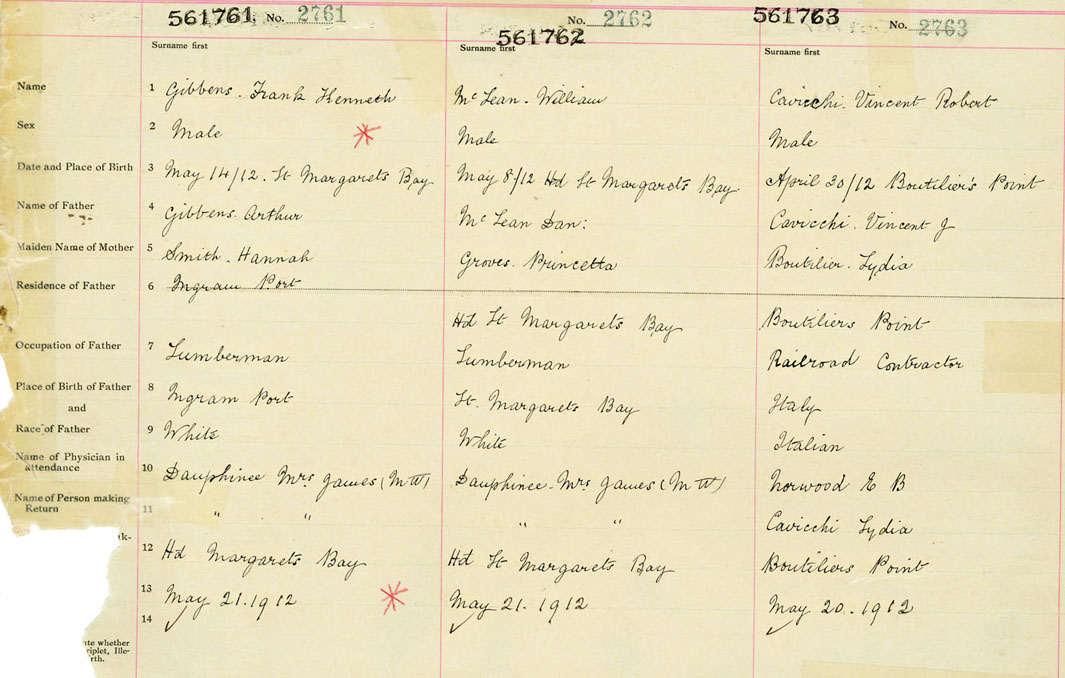 561761, No. 2761
No. 2762
561762
561763 No. 2763
Surname first
Surname first
Surname first
Name 1 Gibbens. Frank Kenneth McLean. William Cavicchi. Vincent Robert
Sex 2 Male Male Male
Date and Place of Birth 3 May 14/12. St Margarets Bay May 8/12 Hd St Margarets Bay April 30/12 Boutilier's Point
Name of Father 4 Gibbens. Arthur McLean Dan: Cavicchi. Vincent J
Maiden Name of Mother 5 Smith. Hannah Groves. Princetta Boutilier. Lydia
Residence of Father 6 Ingram Port
Hd St Margarets Bay Boutiliers Point
Occupation of Father 7 Lumberman Lumberman Railroad Contractor
Place of Birth of Father 8 Ingram Port St. Margarets Bay Italy
and
Race of Father 9 White White Italian
Name of Physician in
attendance 10 Dauphinee Mrs James (M W) Dauphinee. Mrs James (M W) Norwood E B
Name of Person making
Return 11 " " " " Cavicchi Lydia
k-
12 Hd Margarets Bay Hd St Margarets Bay Boutiliers Point
13 May 21. 1912 May 21. 1912 May 20. 1912
14
ate whether
riplet, Ille-
rth.